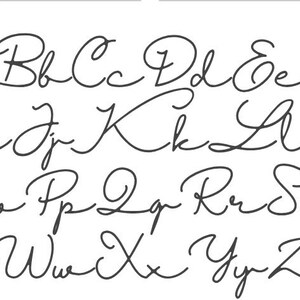 Bb Cc Dd Ee
Jj Kk Ll
Pp Qq Rr S
Ww Xx Yy Z